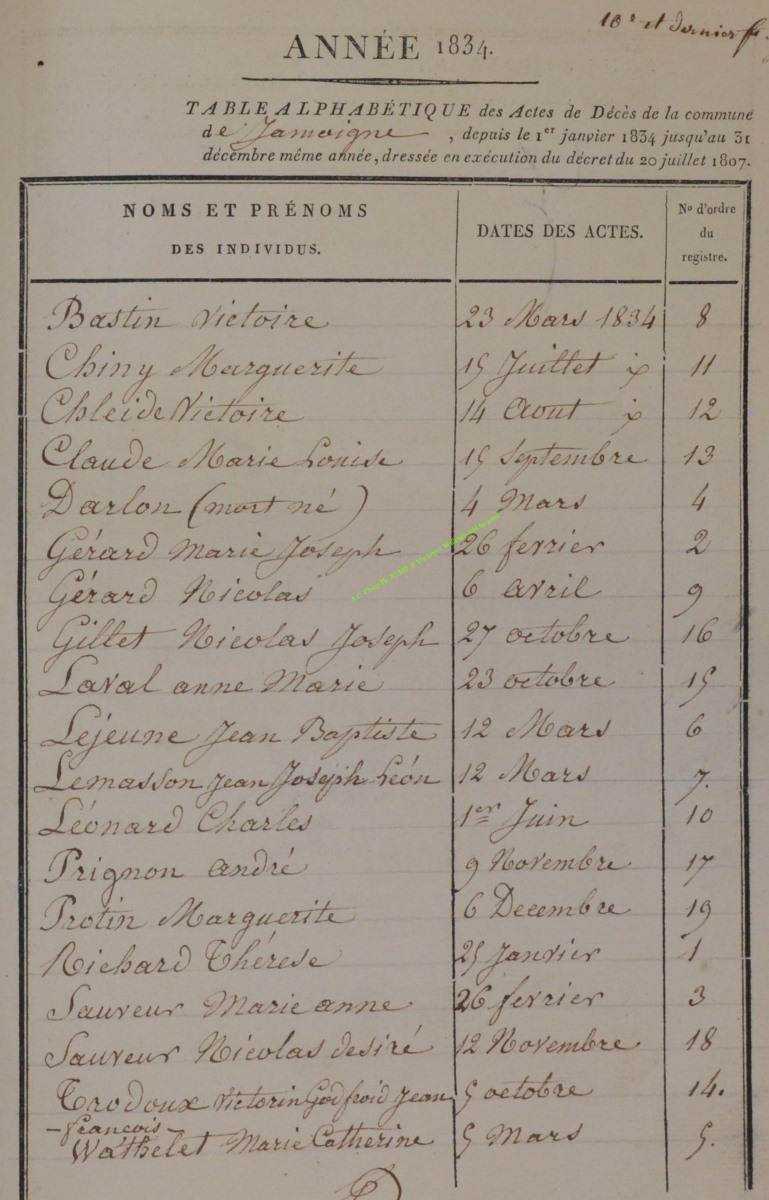 10e et dernier f
ANNÉE 1834.
TABLE ALPHABÉTIQUE des Actes de Décès de la commune
de Jamoigne, depuis le 1er janvier 1834 jusqu'au 31
décembre même année, dressée en exécution du décret du 20 juillet 1807.
NOMS ET PRÉNOMS DES INDIVIDUS. DATES DES ACTES. No d'ordre du registre.
Bastin Victoire 23 Mars 1834 8
Chiny Marguerite 15 Juillet 11
Chleide Victoire 14 Aout 12
Claude Marie Louise 15 Septembre 13
Darlon (mort né) 4 Mars 4
Gérard Marie Joseph 26 fevrier 2
Gérard Nicolas 6 avril 9
Gillet Nicolas Joseph 27 octobre 16
Laval anne Marie 23 octobre 15
Lejeune Jean Baptiste 12 Mars 6
Lemasson Jean Joseph Léon 12 Mars 7.
Léonard Charles 1er Juin 10
Prignon andré 9 Novembre 17
Protin Marguerite 6 Decembre 19
Richard Thérese 25 Janvier 1
Sauveur Marie anne 26 fevrier 3
Sauveur Nicolas desiré 12 Novembre 18
Trodoux Victorin Godfroid Jean 5 octobre 14.
- françois -
Wathelet Marie Catherine 5 Mars 5.